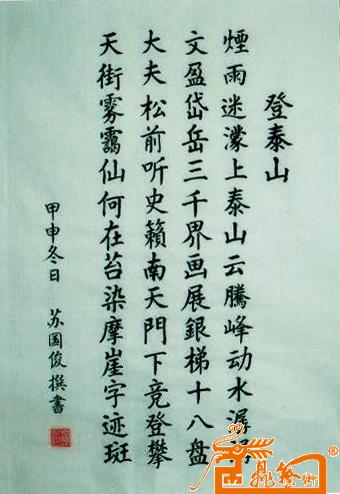 登泰山
煙雨迷濛上泰山云騰峰动水潺潺
文盈岱岳三千界画展銀梯十八盘
大夫松前听史籟南天門下竞登攀
天街雾靄仙何在苔染摩崖字迹斑
甲申冬日 苏国俊撰書